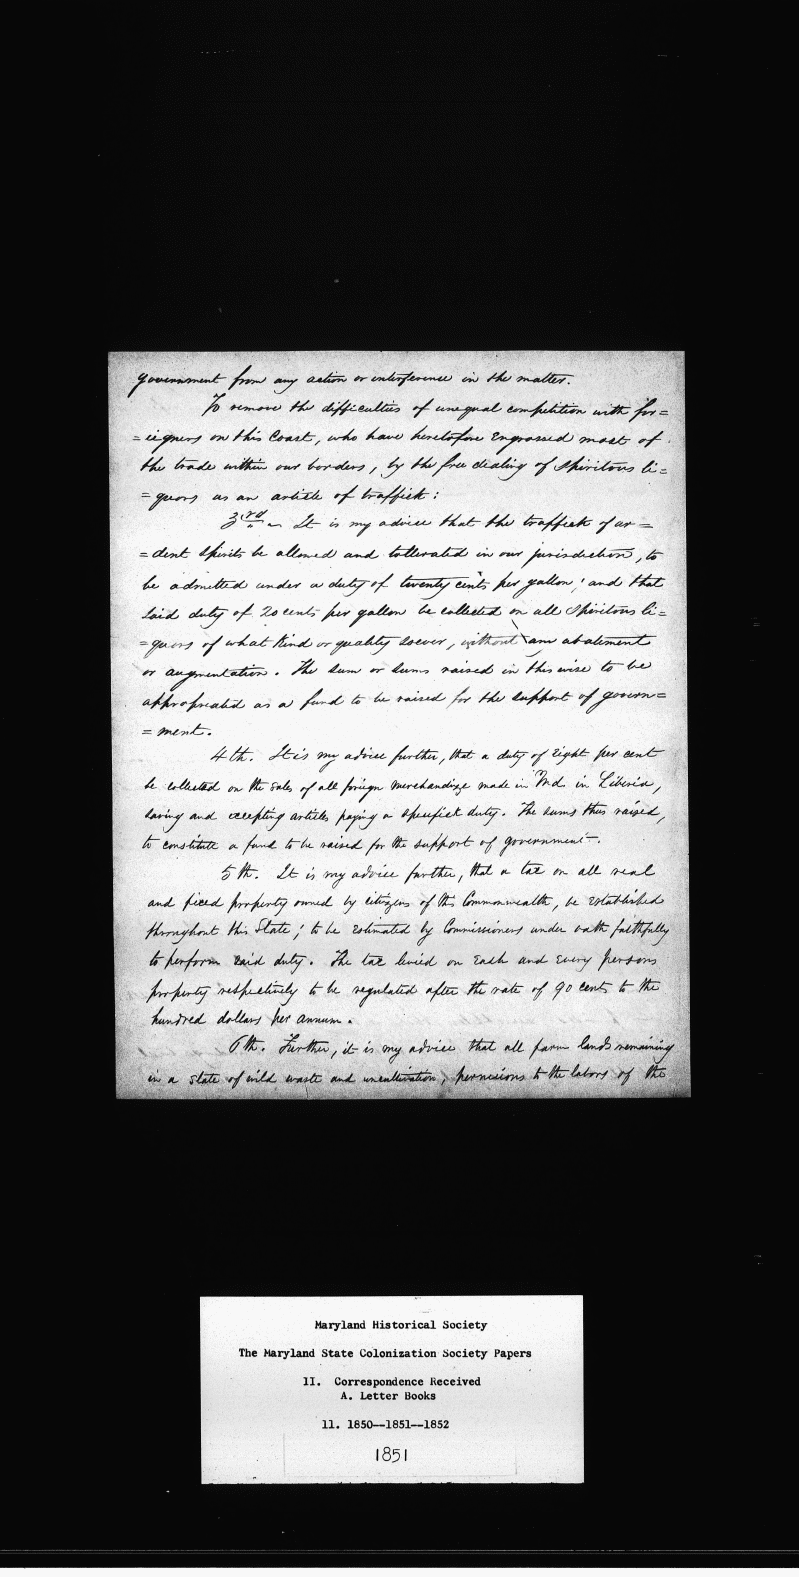 government from any action or interference in the matter.
To remove the difficulties of unequal competition with for=
=eigners on this Coast, who have heretofore Engrossed most of
the trade within our borders, by the free dealing of Spiritous li=
=quors as an article of traffick:
3rd It is my advice that the traffick of ar=
=dent spirits be allowed and tollerated in our jurisdiction, to
be admitted under a duty of twenty cents per gallon; and that
said duty of 20 cents per gallon be collected on all Spiritous li=
=quors of what Kind or quality soever, without any abatement
or augmentation. The sum or sums raised in this wise to be
appropriated as a fund to be raised for the support of govern=
=ment.
4th. It is my advice further, that a duty of Eight per cent
be collected on the sales of all foreign Merchandize made in Md. in Liberia,
saving and excepting articles paying a specifick duty. The sums thus raised,
to constitute a fund to be raised for the support of government.
5th. It is my advice further, that a tax on all real
and fixed property owned by citizens of the Commonwealth, be Established
throughout this State; to be Estimated by Commissioners under oath faithfully
to perform said duty. The tax levied on Each and Every persons
property respectively to be regulated after the rate of 90 cents to the
hundred dollars per annum.
6th. Further, it is my advice that all farm lands remaining
in a state of wild waste and uncultivation, pernicious to the labors of the
Maryland Historical Society
The Maryland State Colonization Society Papers
II. Correspondence Received
A. Letter Books
11. 1850--1851--1852
1851